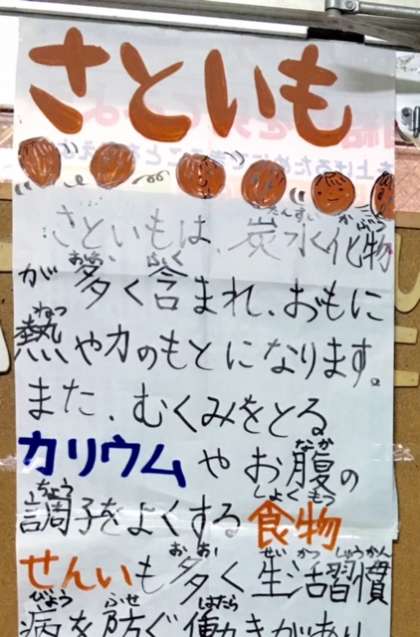 さといも
さといもは、炭水化物
が多く含まれ、おもに
熱や力のもとになります。
また、むくみをとる
カリウムやお腹の
調子をよくする食物
せんいも多く生活習慣
病を防ぐ働きがあり